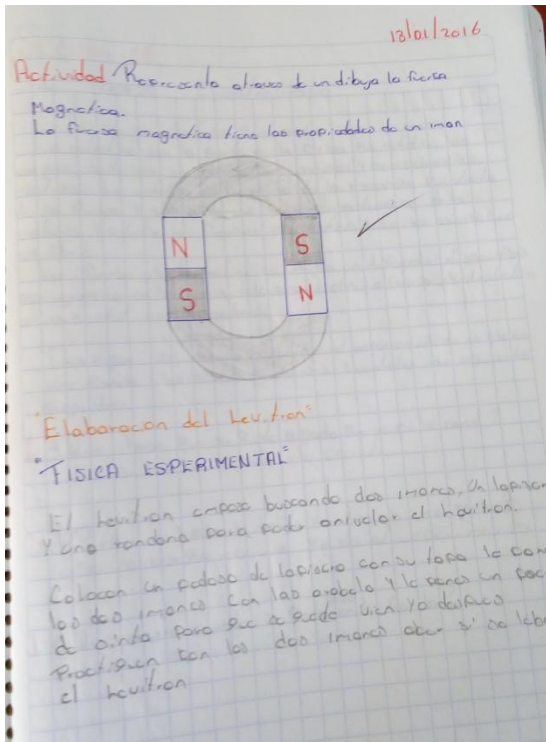 13/01/2016
Actividad Reoresente atraves de un dibujo la fuersa
Magnetica.
La fuersa magnetica tiene las propiedades de un iman
N S
S N
"Elaboracion del Levitron"
"FISICA ESPERIMENTAL"
El levitron empese buscando dos imanes, Un lapicero
Y una rondana para poder anivelar el levitron.
Colocan un pedaso de lapicero con su tapa le
los dos imanes con las y le un
de para que se quede bien Ya despues
Practiquen con los dos imanes aber si se
el levitron